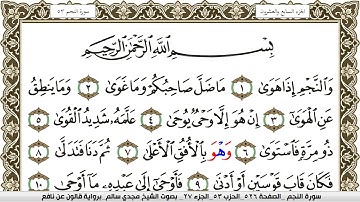 الجزء السابع والعشرون
سورة النجم ٥٣
بِسْمِ اللَّهِ الرَّحْمَٰنِ الرَّحِيمِ
وَالنَّجْمِ إِذَا هَوَىٰ ١ مَا ضَلَّ صَاحِبُكُمْ وَمَا غَوَىٰ ٢ وَمَا يَنطِقُ
عَنِ الْهَوَىٰ ٣ إِنْ هُوَ إِلَّا وَحْيٌ يُوحَىٰ ٤ عَلَّمَهُ شَدِيدُ الْقُوَىٰ ٥
ذُو مِرَّةٍ فَاسْتَوَىٰ ٦ وَهُوَ بِالْأُفُقِ الْأَعْلَىٰ ٧ ثُمَّ دَنَا فَتَدَلَّىٰ ٨
فَكَانَ قَابَ قَوْسَيْنِ أَوْ أَدْنَىٰ ٩ فَأَوْحَىٰ إِلَىٰ عَبْدِهِ مَا أَوْحَىٰ ١٠
سورة النجم - الصفحة ٥٢٦ - الحزب ٥٣ - الجزء ٢٧ - بصوت الشيخ مجدي سالم - برواية قالون عن نافع